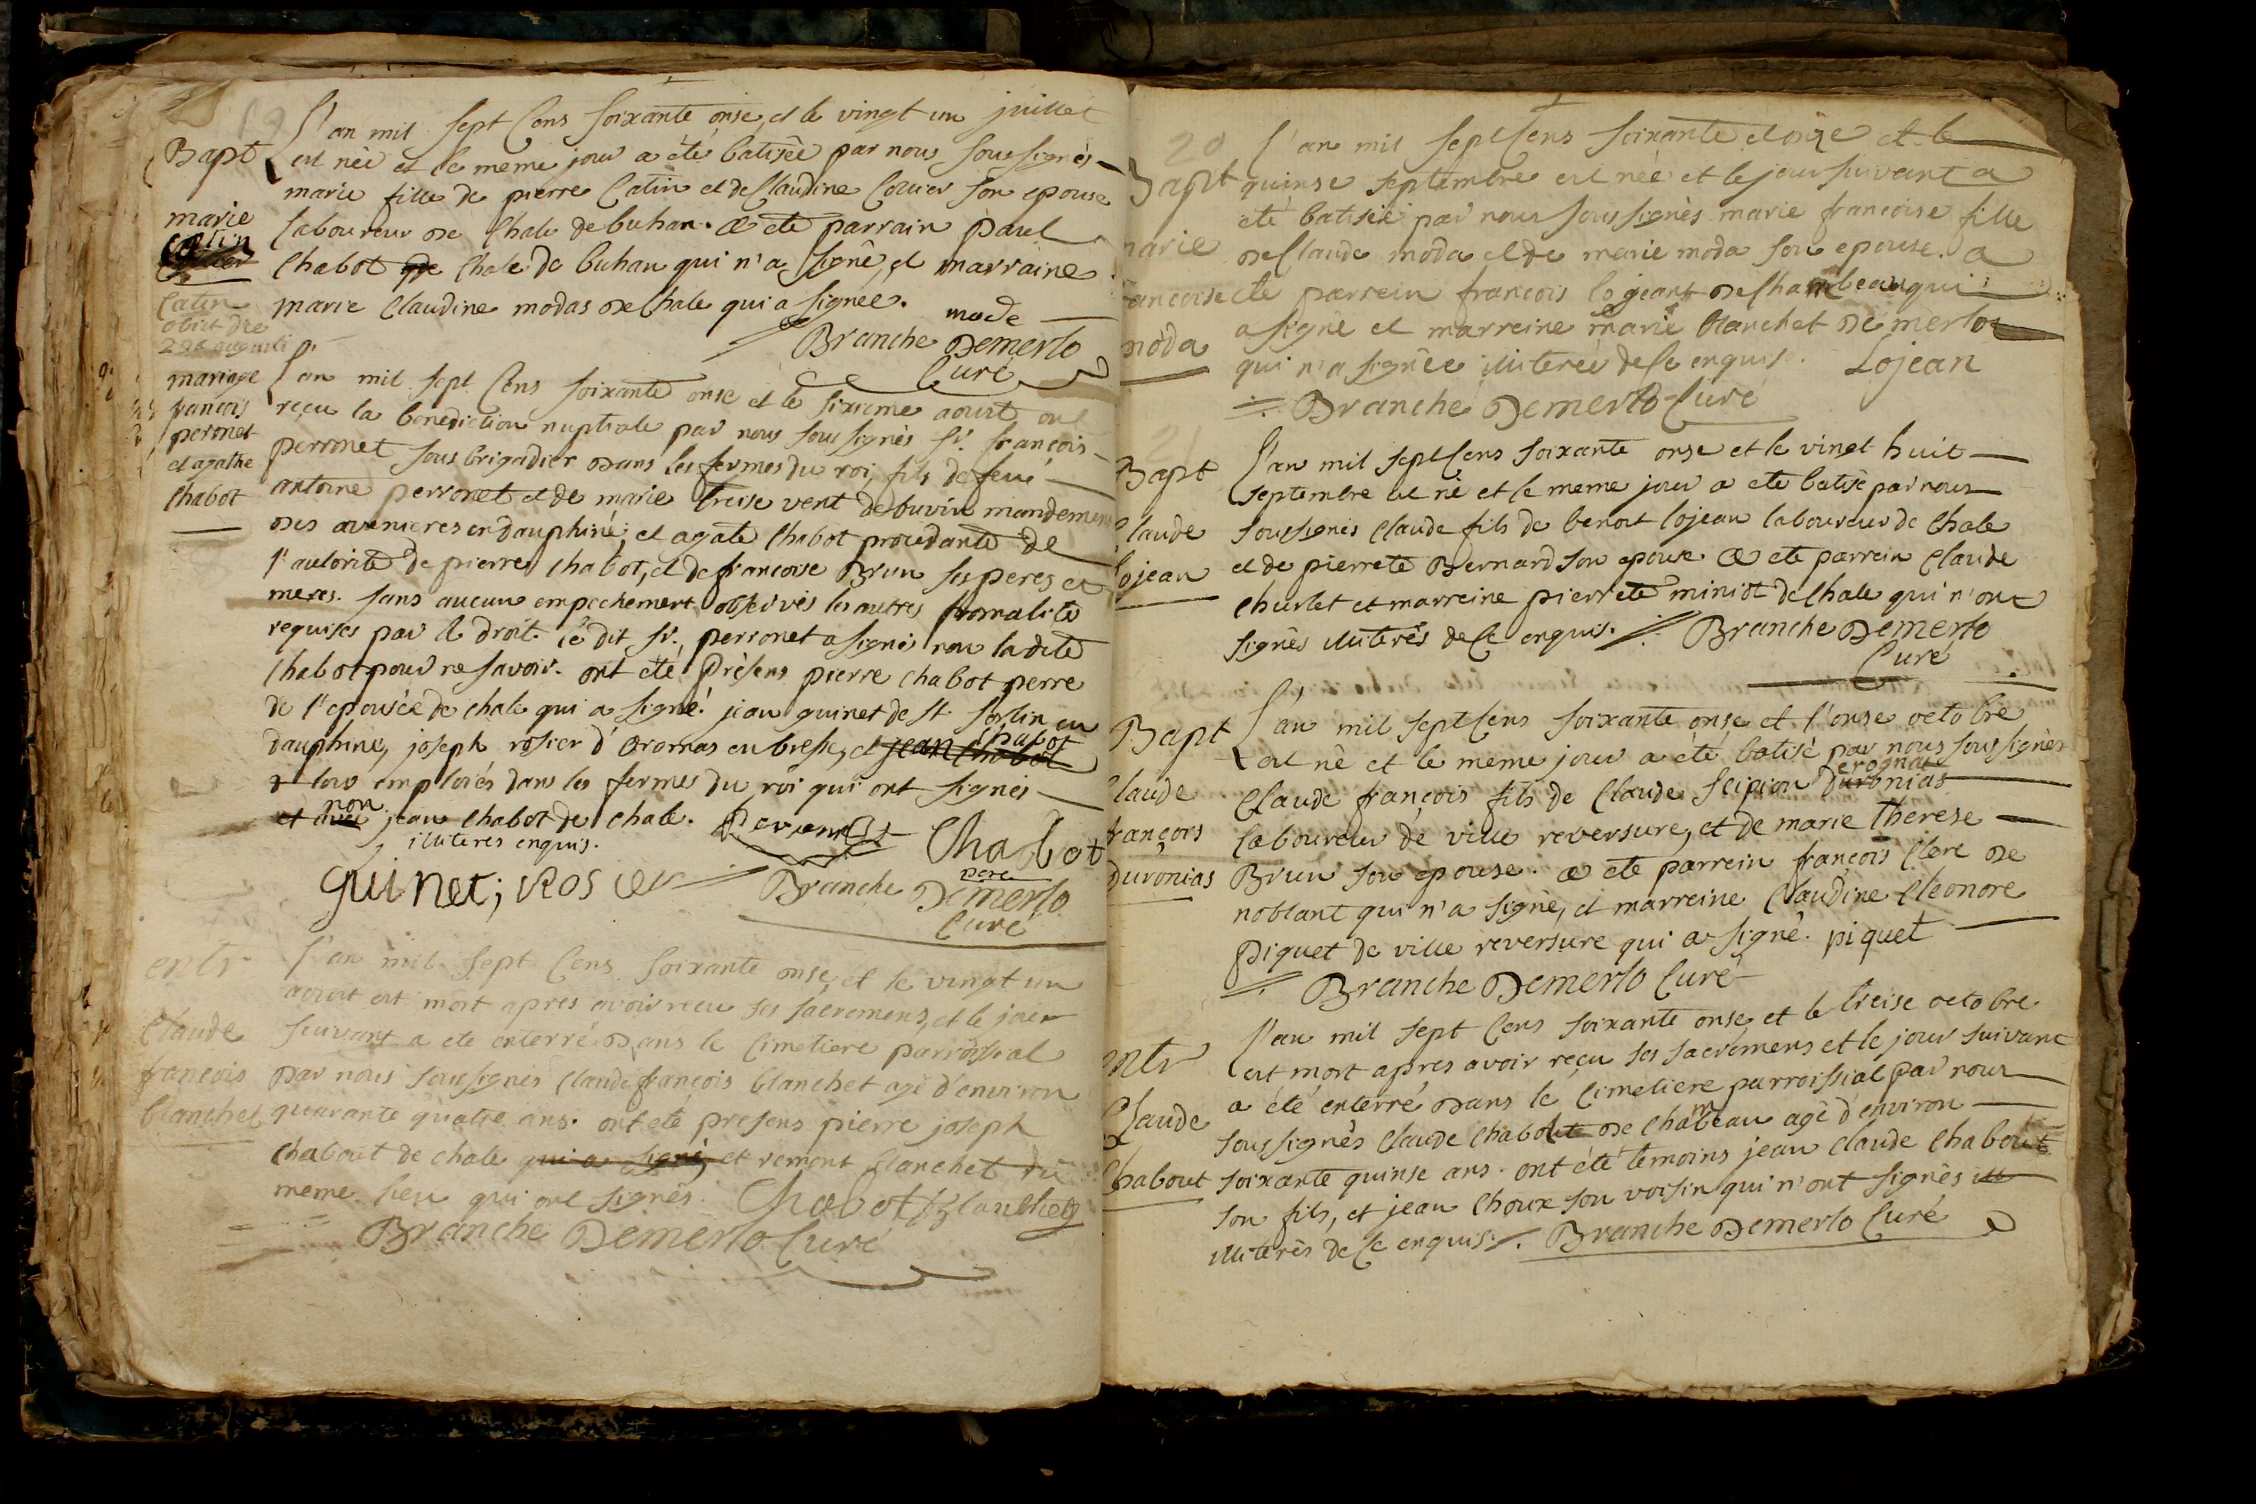 19
L'an mil sept Cens soixante onse, et le vingt un juillet
Bapt est née et le meme jour a été batisée par nous soussignés
marie fille de pierre Catin et de Claudine Cottier son epouse
marie laboureur de Chale de buhan. a ete parrain paul
Catin Chabot de Chale de buhan qui n'a signé, et marraine
marie Claudine modas de Chale qui a signée. mode
Catin
obiit die
29a augusti
Branche Demerlo
Curé
mariage L'an mil sept Cens soixante onse et le sixieme aoust ont
françois reçu la benediction nuptiale par nous soussignés sr. françois
peronet perronet sous brigadier dans les fermes du roi, fils de feue
et agathe antoine perronet et de marie treise vent de buvin mandement
Chabot des avenieres en dauphiné; et agate Chabot procedante de
l'autorité de pierre Chabot, et de francoise Brun ses peres et
meres. sans aucun empechement observés les autres fromalité
requises par le droit. le dit sr. perronet a signé non ladite
Chabot pour ne savoir. ont eté présens pierre Chabot perre
de l'epousée de Chale qui a signé. jean guinet de st. sorlin en
dauphine, joseph rosier d'oromas en bresse, et jean Chabot
Chabot
tous emploiés dans les fermes du roi qui ont signés
et avec non jean Chabot de Chale.
illiteres enquis. Perronet Chabot
pere
guinet; Rosier Branche Demerlo
Curé
entr L'an mil sept Cens soixante onse, et le vingt un
aoust est mort apres avoir recu ses sacremens, et le jour
Claude suivant a ete enterré dans le Cimetiere parroissial
francois par nous soussignés Claude françois blanchet agé d'environ
blanchet quarante quatre ans. ont eté presens pierre joseph
Chabout de Chale qui a signé, et remont blanchet du
meme lieu qui ont signés. Chabot Blanchet
Branche Demerlo Curé
20
L'an mil sept Cens soixante et onze et le
Bapt quinse septembre est née et le jour suivant a
eté batisée par nous soussignés marie francoise fille
marie de Claude moda et de marie moda son epouse. a
francoise ete parrein françois logeant de Chambeau qui
a signé et marreine marie blanchet de merlo
moda qui n'a signée illiterée de Ce enquise. Lojean
Branche Demerlo Curé
21
L'an mil sept Cens soixante onse et le vinet huit
Bapt septembre est né et le meme jour a ete batisé par nous
Claude soussignés Claude fils de benoit lojean laboureur de Chale
lojean et de pierrete Bernard son epouse a ete parrein Claude
Churlet et marreine pierrete miniot de Chale qui n'ont
signés illiterés de Ce enquis. Branche Demerlo
Curé
Bapt L'an mil sept Cens soixante onse et l'onse octobre
est né et le meme jour a eté batisé par nous soussignés
Claude Claude françois fils de Claude scipion Duronias
françois laboureur de ville reversure, et de marie therese
duronias Brun son epouse. a ete parrein françois Clere de
noblant qui n'a signé, et marreine Claudine Eleonore
piquet de ville reversure qui a signé. piquet
Branche Demerlo Curé
L'an mil sept Cens soixante onse, et le treise octobre
entr est mort apres avoir reçu ses sacremens et le jour suivant
a été enterré dans le Cimetiere parroissial par nous
Claude soussignés Claude Chabout de Chambeau agé d'environ
Chabout soixante quinse ans. ont été temoins jean Claude Chabout
son fils, et jean Choux son voisin qui n'ont signés
illiterés de Ce enquis. Branche Demerlo Curé